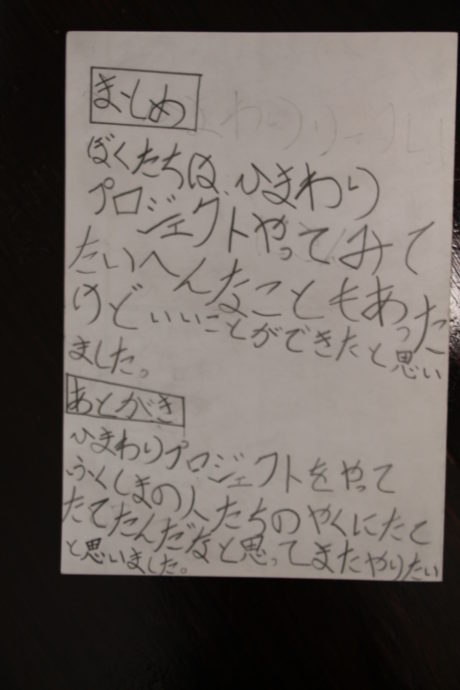 まとめ
ぼくたちは、ひまわり
プロジェクトやってみて
たいへんなこともあった
けどいいことができたと思い
ました。
あとがき
ひまわりプロジェクトをやって
ふくしまの人たちのやくにたて
たてたんだなと思ってまたやりたい
と思いました。